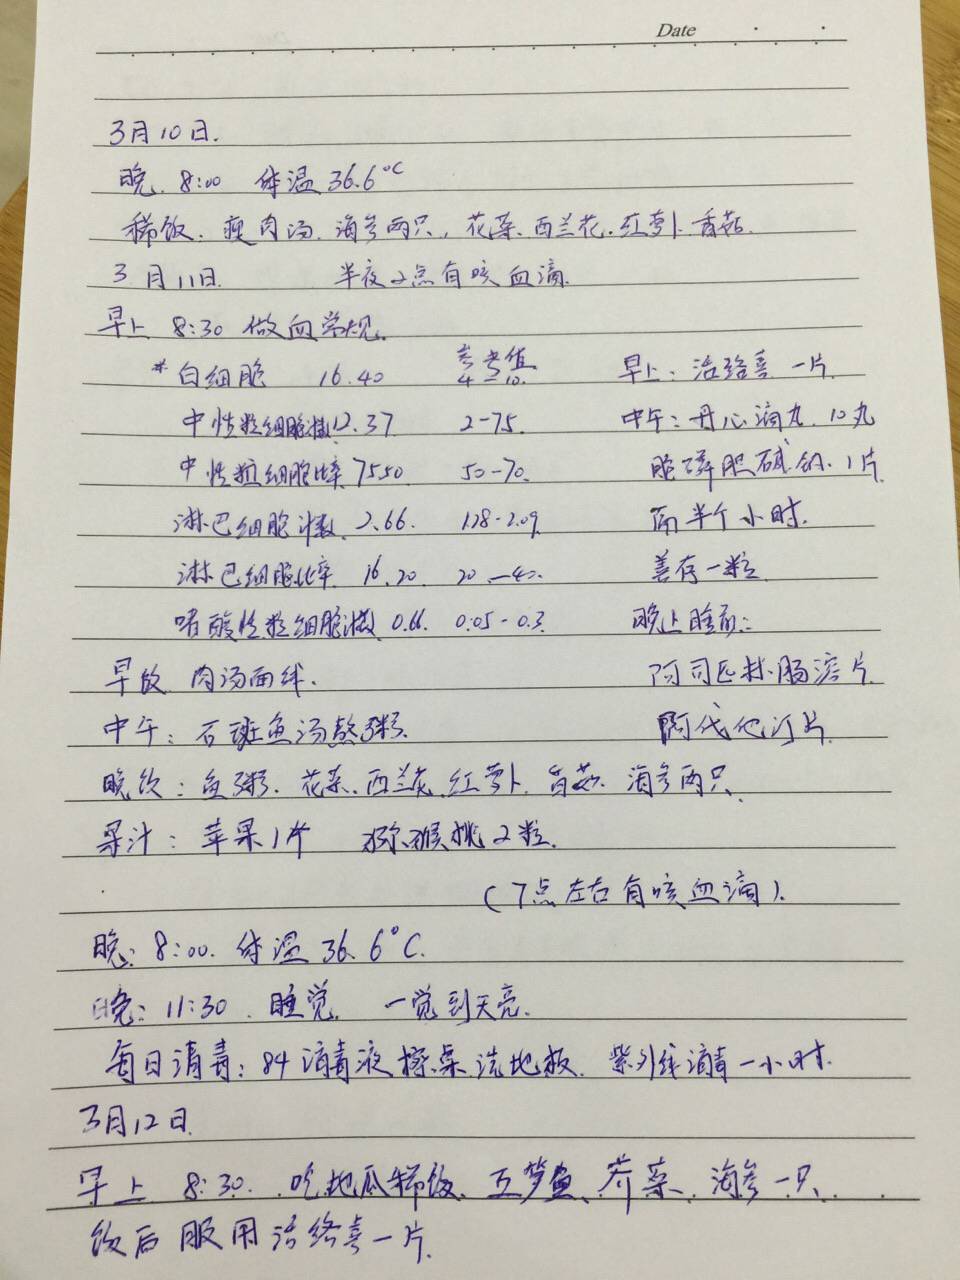 Date
3月10日.
晚. 8:00 体温 36.6°C
稀饭. 瘦肉汤. 海参两只, 花菜. 西兰花. 红萝卜. 香菇.
3月11日 半夜2点有咳血滴.
早上 8:30 做血常规.
*白细胞 16.40 参考值 4-10. 早上: 洛 一片.
中性粒细胞 12.37 2-75. 中午: 丹心滴丸. 10丸
中性粒细胞比率 75.50 50-70. 胞磷胆碱钠. 1片
淋巴细胞计数. 2.66. 1.28-2.09 半个小时.
淋巴细胞比率 16.20 20-40. 善存一粒
嗜酸性粒细胞 0.66. 0.05-0.3. 晚上睡前:
早饭 肉汤面线. 阿司匹林肠溶片.
中午: 石斑鱼汤熬粥. 阿伐他汀片.
晚饭: 鱼粥. 花菜. 西兰花. 红萝卜. 香菇. 海参两只.
果汁: 苹果1个 猕猴桃2粒.
(7点左右有咳血滴).
晚: 8:00. 体温 36.6°C.
晚: 11:30. 睡觉. 一觉到天亮.
每日消毒: 84消毒液擦桌洗地板. 紫外线消毒一小时.
3月12日.
早上 8:30. 吃地瓜稀饭. 鱼. 芥菜. 海参一只.
饭后服用洛 一片.